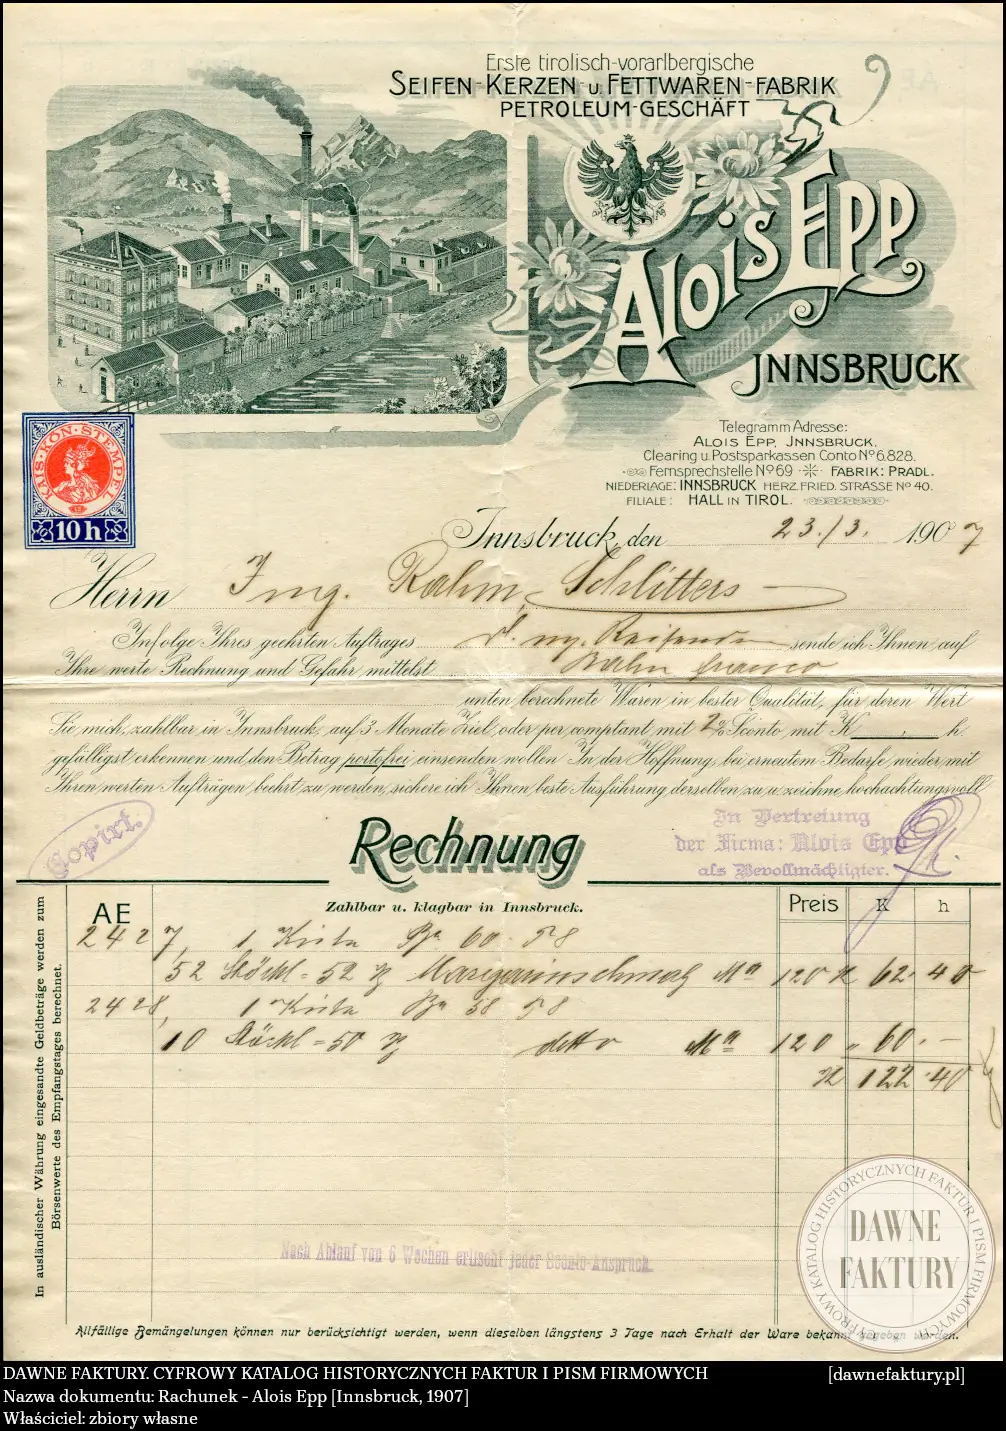 Erste tirolisch-vorarlbergische
SEIFEN-KERZEN-u. FETTWAREN-FABRIK
PETROLEUM-GESCHÄFT
Alois Epp
JNNSBRUCK
Telegramm Adresse:
ALOIS EPP, JNNSBRUCK.
Clearing u. Postsparkassen Conto No 6.828.
Fernsprechstelle No 69 FABRIK: PRADL.
NIEDERLAGE: INNSBRUCK HERZ. FRIED. STRASSE No 40.
FILIALE: HALL IN TIROL.
KAIS·KÖN·STEMPEL
10 h
Innsbruck, den 23./3. 1907
Herrn Ing. Rahm, Schlitters
Infolge Ihres geehrten Auftrages d. m. Reisenden sende ich Ihnen auf
Ihre werte Rechnung und Gefahr, mittelst Bahn franco
unten berechnete Waren in bester Qualität, für deren Wert
Sie mich, zahlbar in Innsbruck, auf 3 Monate Ziel, oder per comptant mit 2% Sconto mit K , h
gefälligst erkennen und den Betrag portofrei einsenden wollen. In der Hoffnung, bei erneutem Bedarfe, wieder mit
Ihren werten Aufträgen beehrt zu werden, sichere ich Ihnen beste Ausführung derselben zu u. zeichne, hochachtungsvoll
Copirt.
In Vertretung
der Firma: Alois Epp
als Bevollmächtigter.
Rechnung
Zahlbar u. klagbar in Innsbruck.
AE Preis K h
2427, 1 Kiste Br 60 · 58
52 Stöckl = 52 Margarinschmalz Ma 120 K 62. 40
2428, 1 Kiste Br 58 58
10 Stöckl = 50 detto Ma 120 " 60. -
K 122.40
In ausländischer Währung eingesandte Geldbeträge werden zum
Börsenwerte des Empfangstages berechnet.
Nach Ablauf von 6 Wochen erlischt jeder Sconto-Anspruch.
Allfällige Bemängelungen können nur berücksichtigt werden, wenn dieselben längstens 3 Tage nach Erhalt der Ware bekannt gegeben werden.
DAWNE
FAKTURY
CYFROWY KATALOG HISTORYCZNYCH FAKTUR I PISM FIRMOWYCH
DAWNE FAKTURY. CYFROWY KATALOG HISTORYCZNYCH FAKTUR I PISM FIRMOWYCH [dawnefaktury.pl]
Nazwa dokumentu: Rachunek - Alois Epp [Innsbruck, 1907]
Właściciel: zbiory własne